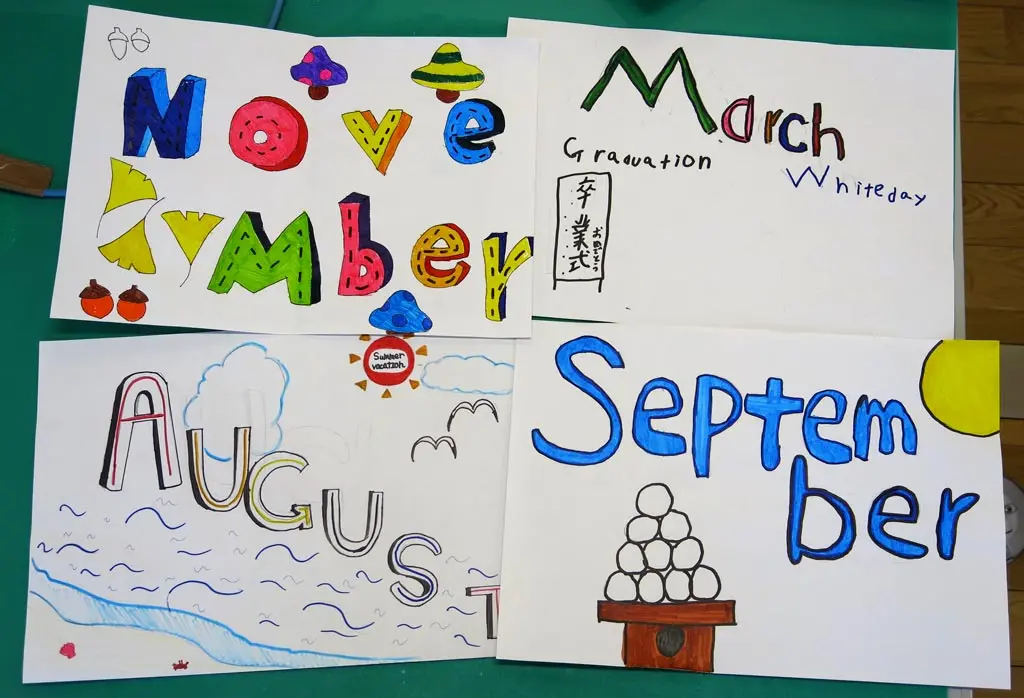 Nove
mber
March
Graduation
Whiteday
卒業式
おめでとう
Summer
vacation
AUGUST
Septem
ber